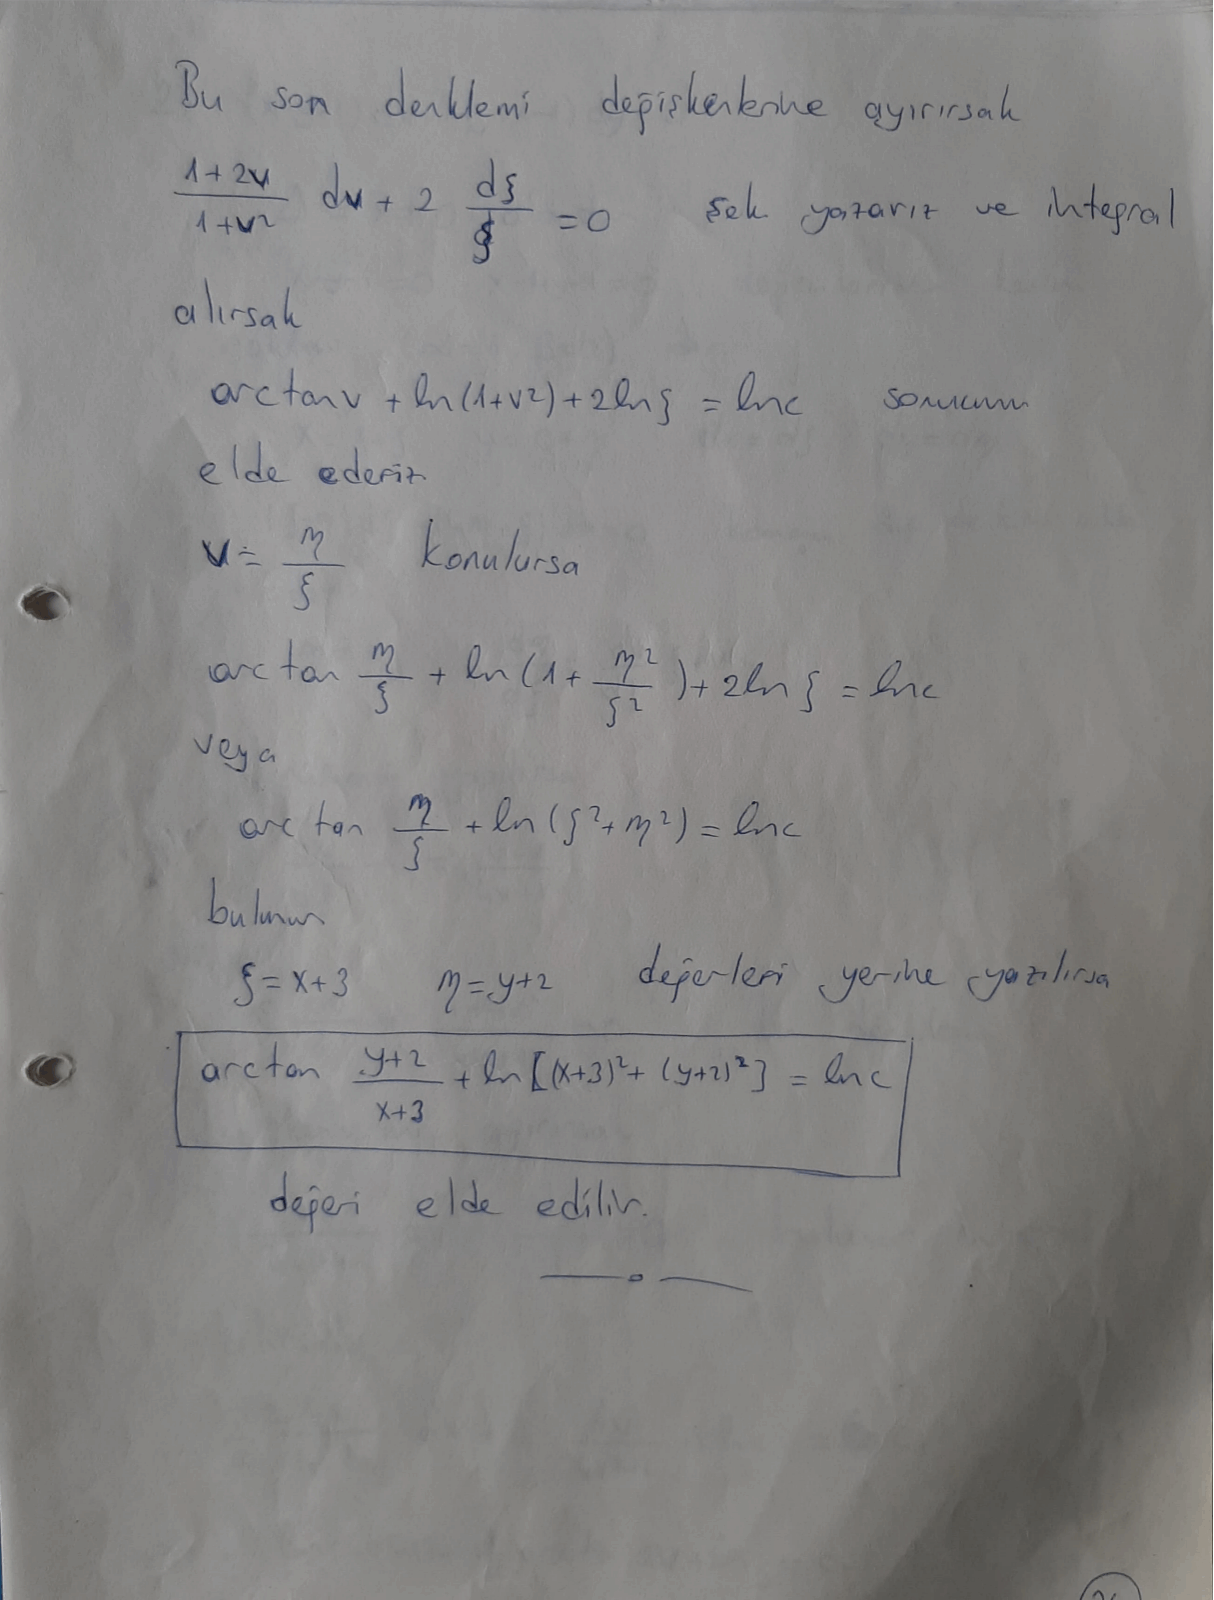 Bu son denklemi değişkenlerine ayırırsak
(1+2v)/(1+v²) dv + 2 dξ/ξ = 0 şek. yazarız ve integral
alırsak
arctan v + ln(1+v²) + 2lnξ = lnc sonucunu
elde ederiz
v = η/ξ konulursa
arctan η/ξ + ln(1 + η²/ξ²) + 2lnξ = lnc
veya
arc tan η/ξ + ln(ξ²+η²) = lnc
bulunur
ξ = x+3 η = y+2 değerleri yerine yazılırsa
arctan (y+2)/(x+3) + ln[(x+3)² + (y+2)²] = lnc
değeri elde edilir.